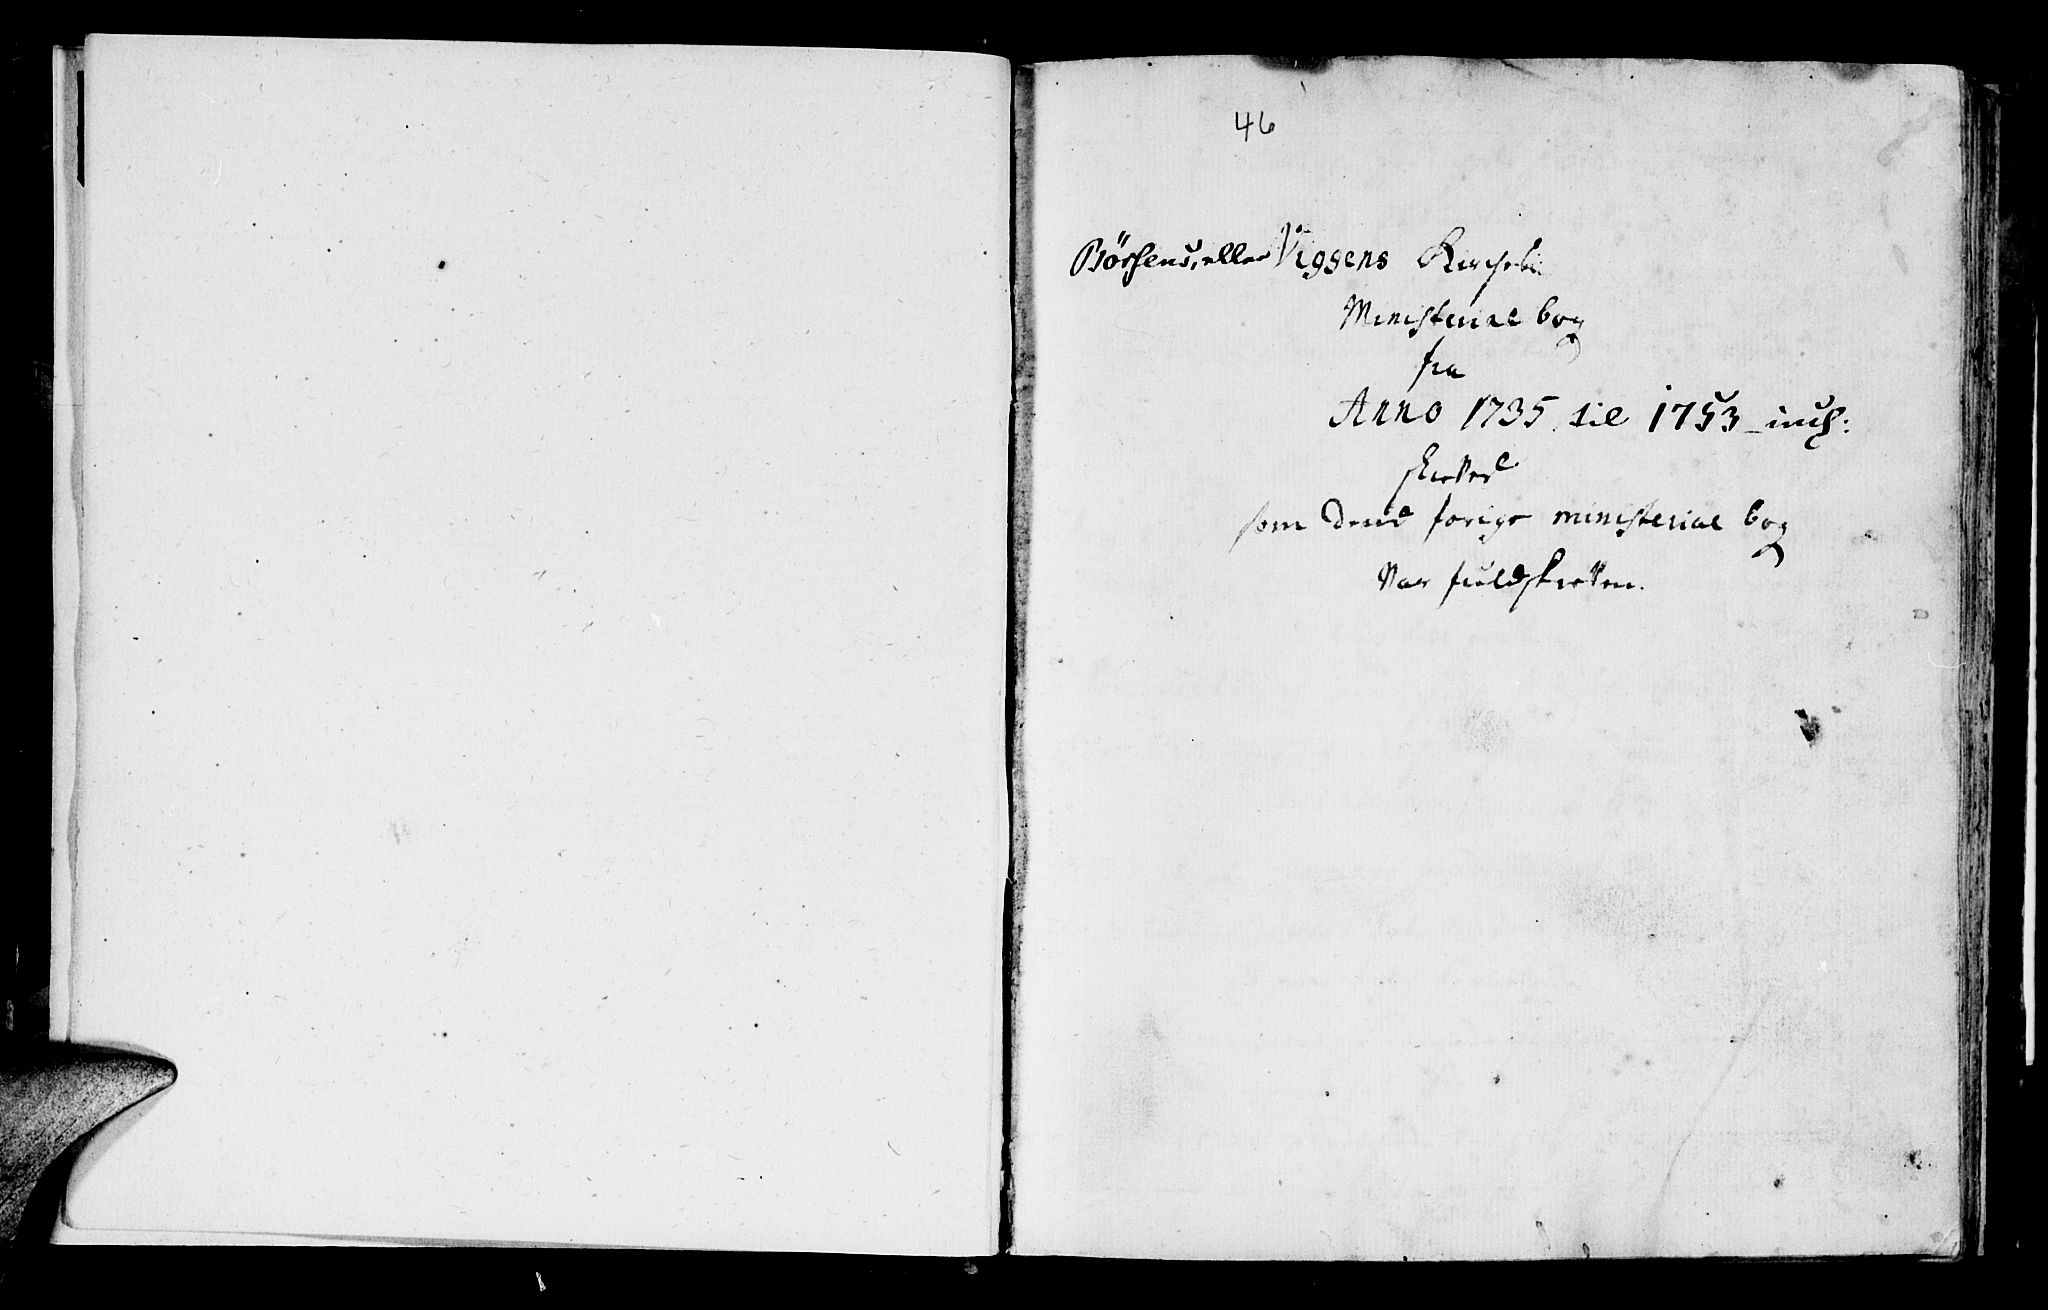 46
Börsens, eller Viggens Kirches
Ministerial bog
fra
Anno 1735 til 1753 incl:
skrevet
som dend forige ministerial bog
var fuldskreven.